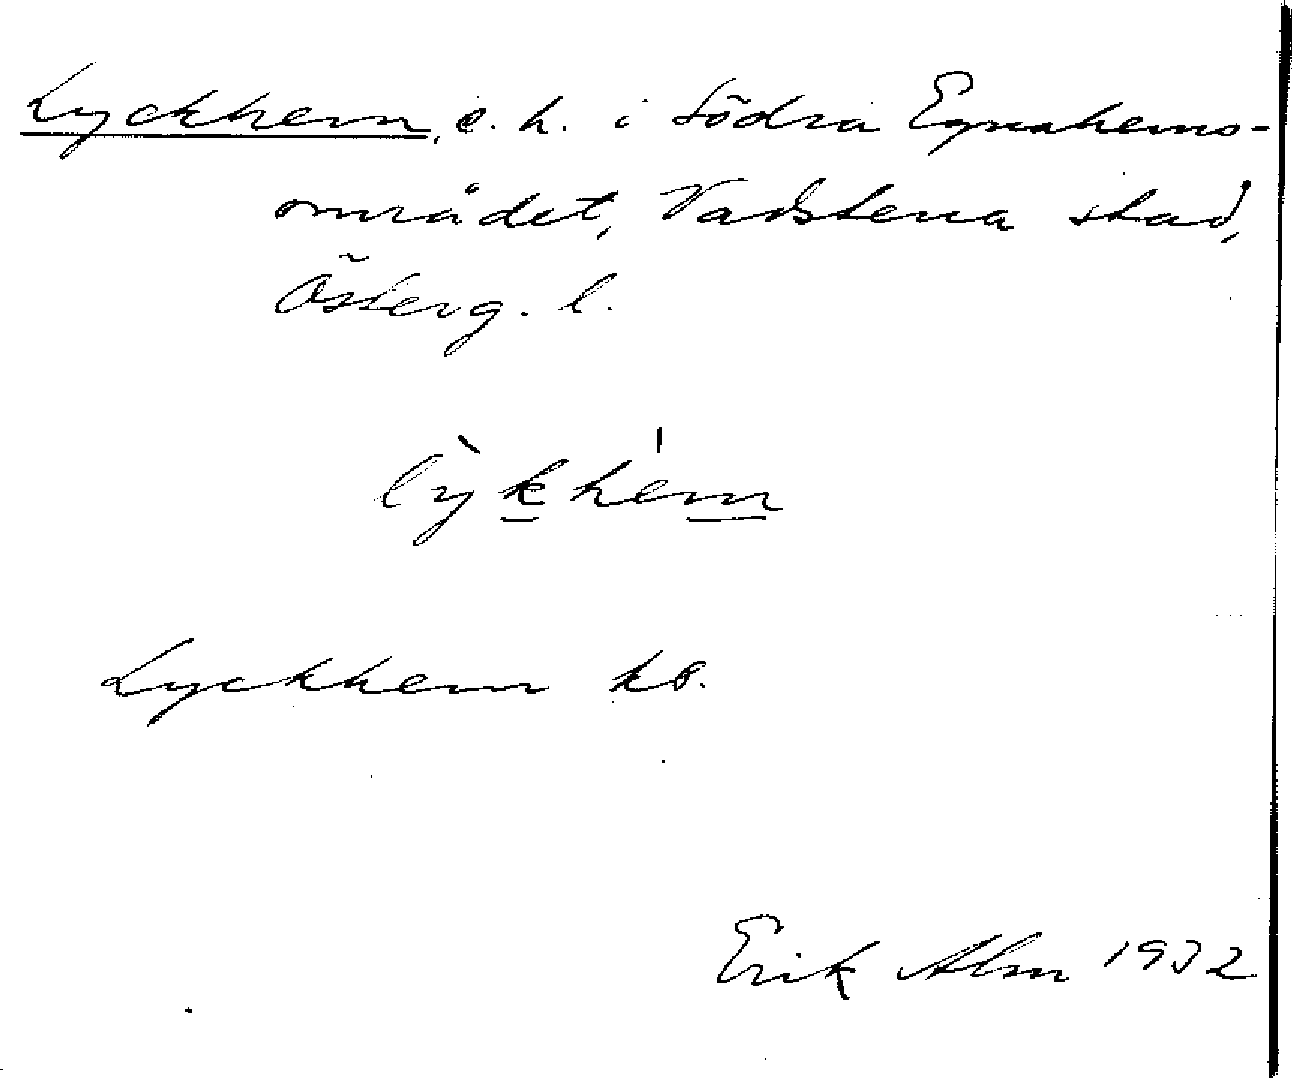 Lyckhem, e. h. i Södra Egnahems-
området, Vadstena stad,
Österg. l.
lỳkhém
Lyckhem kb.
Erik Alm 1932